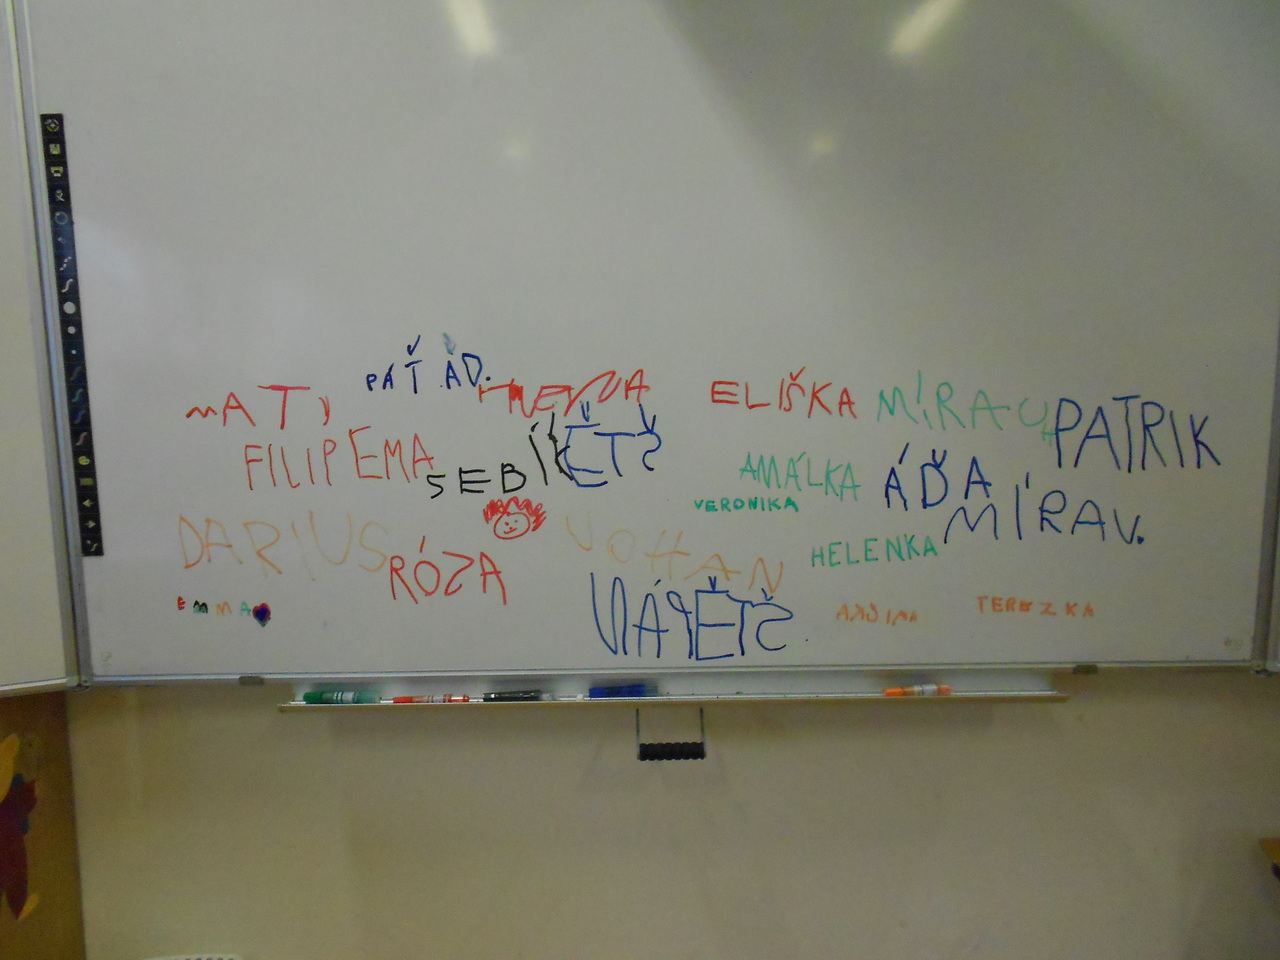 PÁŤ ÁĎ.
MAT
ELIŠKA
MÍRA
PATRIK
FILIP EMA
SEBÍK
AMÁLKA
ÁĎA
VERONIKA
MÍRA V.
DARIUS
RÓZA
JOHAN
HELENKA
EMMA
TEREZKA